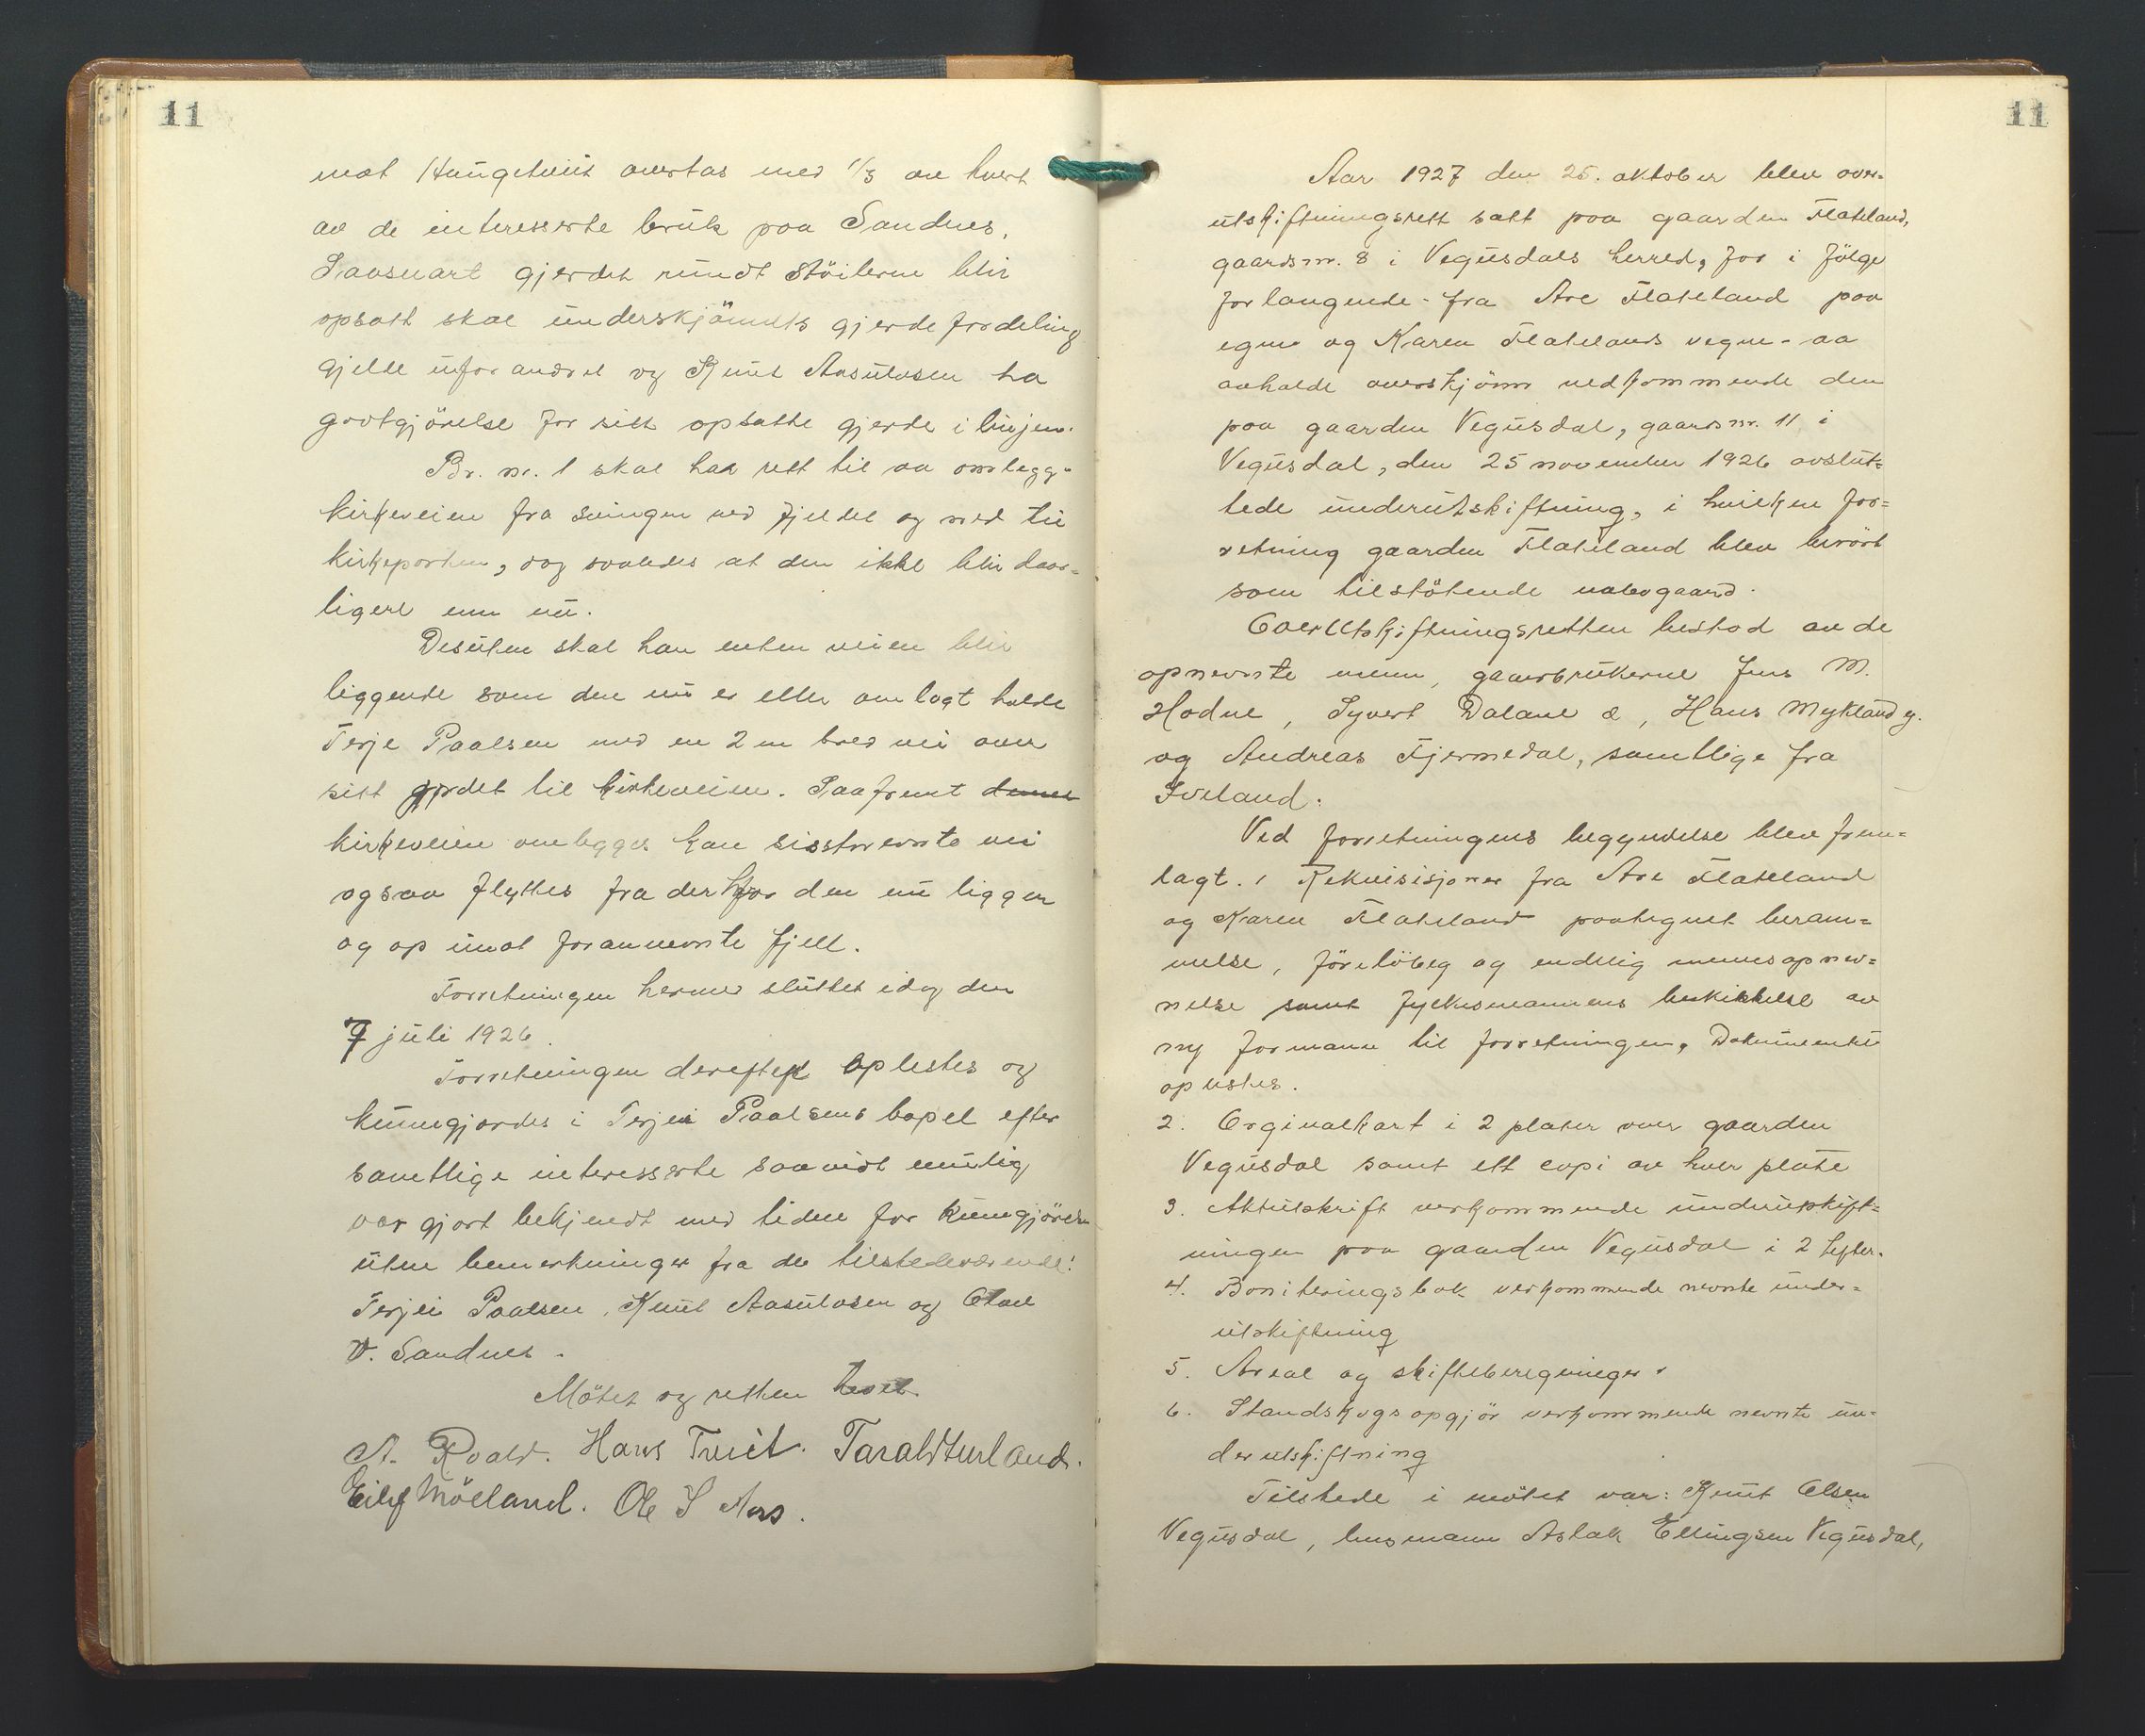 11
mot Haugetveit overtas med 1/3 av hvert
av de interesserte bruk paa Sandnes.
Saasnart gjerdet rundt Stöilerne blir
opsatt skal underskjönnets gjerdefordeling
gjelde uforandret og Knut Aasulvsen ha
godtgjörelse for sitt opsatte gjerde i linjen.
Br. nr. 1 skal haa rett til aa omlegge
kirkeveien fra svingen ved fjeldet og ned til
kirkeporten, dog saaledes at den ikke blir daar=
ligere enn nu.
Desuten skal han enten veien blir
liggende som den nu er eller omlagt holde
Terje Paalsen med en 2 m bred vei over
sitt jordet til kirkeveien. Saafremt denne
kirkeveien omlegges kan sisstnevnte vei
ogsaa flyttes fra derhvor den nu ligger
og op imot forannevnte fjell.
Forretningen hermed sluttet idag den
7 juli 1926.
Forretningen derefter oplestes og
kunngjordes i Terjei Paalsens bopel efter
samtlige interesserte saavidt mulig
var gjort bekjendt med tiden for kunngjörelse
uten bemerkninger fra de tilstedeværende:
Terjei Paalsen, Knut Aasulvsen og Olav
T. Sandnes.
Mötet og retten hevet.
A. Roald. Hans Tveit. Tarald Hurland.
Eilef Möeland. Ole S Aas.
11
Aar 1927 den 25. oktober blev over=
utskiftningsrett satt paa gaarden Flateland,
gaardsnr. 8 i Vegusdals herred, for i fölge
forlangende fra Are Flateland paa
egne og Karen Flatelands vegne aa
avholde overskjönn vedkommende den
paa gaarden Vegusdal, gaardsnr. 11 i
Vegusdal, den 25 november 1926 avslut=
tede underutskiftning, i hvilken for=
retning gaarden Flateland blev berört
som tilstötende nabogaard.
Overutskiftningsretten bestod av de
opnevnte menn, gaardbrukerne Jens M.
Hodne, Syvert Dalane æ, Hans Mykland y.
og Andreas Fjermedal, samtlige fra
Iveland.
Ved forretningens begyndelse blev frem=
lagt. 1 Rekvisisjoner fra Are Flateland
og Karen Flateland paategnet beram=
melse, förelöbeg og endelig mennsopnev=
nelse samt fylkesmannens beskikkelse av
ny formann til forretningen, Dokumentet
oplestes.
2. Orginalkart i 2 plater over gaarden
Vegusdal samt ett copi av hver plate
3. Aktutskrift verkommende underutskift=
ningen paa gaarden Vegusdal i 2 hefter.
4. Boniteringsbok verkommende nevnte under=
utskiftning
5. Areal og skifteberegninger.
6. Standskogsopgjör verkommende nevnte un=
derutskiftning
Tilstede i mötet var: Knut Olsen
Vegusdal, lensmann Aslak Ellingsen Vegusdal,